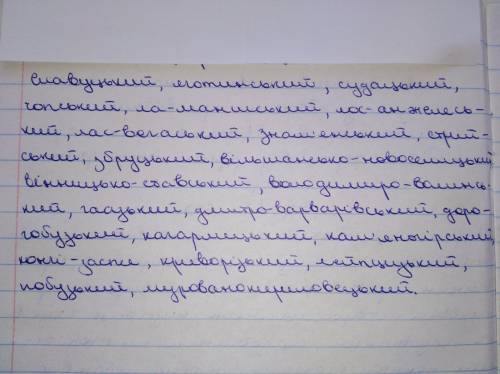 славуцький, яготинський, судацький,
чопський, ла-маншський, лос-анжелесь-
кий, лас-вегаський, знам'янський, стрий-
ський, збруцький, вільшансько-новоселицький
вінницько-ставський, володимиро-волинсь-
кий, гаазький, дмитро-варварівський, доро-
гобузький, кагарлицький, кам'яногірський
криворізький, лейпцизький,
побузький, мурованокуриловецький.